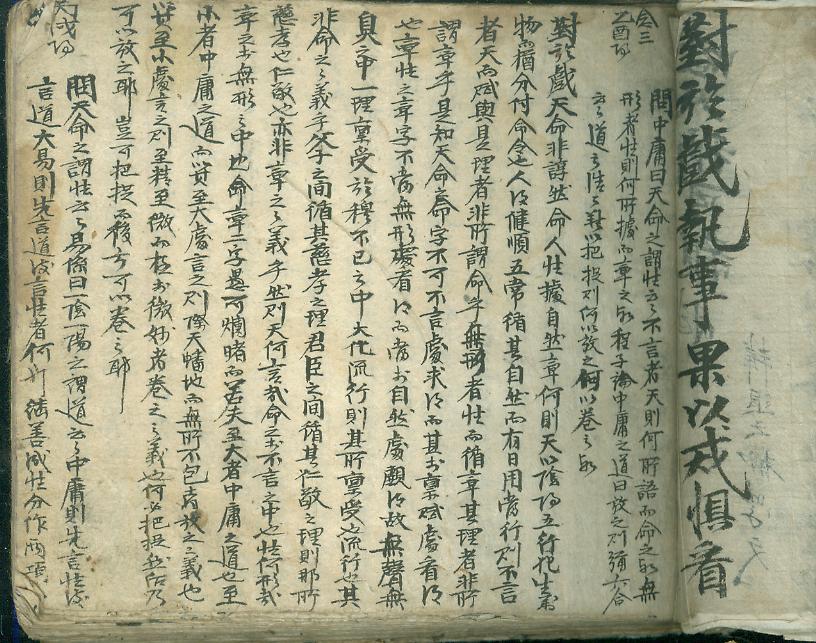 對於戲執事果以戒惧看
念三
乙酉
問中庸曰天命之謂性云云不言者天則何所語而命之耶無
形者性則何所據而率之耶程子論中庸之道曰放之則彌六合
對於戲天命非諄然命人性據自然率何則天以陰陽五行化生萬
物而猶分付命令人得健順五常循其自然而有日用常行則不言
者天而賦與是理者非所謂命乎無形者性而循率其理者非所
謂率乎是知天命命字不可不言處求得而其於稟賦處看得
也率性之率字不當無形處看得而當於自然處觀得故無聲無
臭之中一理稟受於穆不已之中大化流行則其所稟受也流行也其
非命之之義乎父子之間循其慈孝之理君臣之間循其仁敬之理則那所
慈孝也仁敬也亦非率之之義乎然則天何言哉命至於不言之中也性何形哉
率之於無形之中也命率二字是可爛睹而若夫至大者中庸之道也至
小者中庸之道而其至大處言之則際天蟠地而無所不包者放之之義也
其至小處言之則至精至微而極於微妙者卷之之義也何必把捉然後乃
可以放之耶豈可把捉而後方可以卷之耶
問天命之謂性云云易係曰一陰一陽之謂道云云中庸則先言性後
言道大易則先言道後言性者何所 継善成性分作兩項